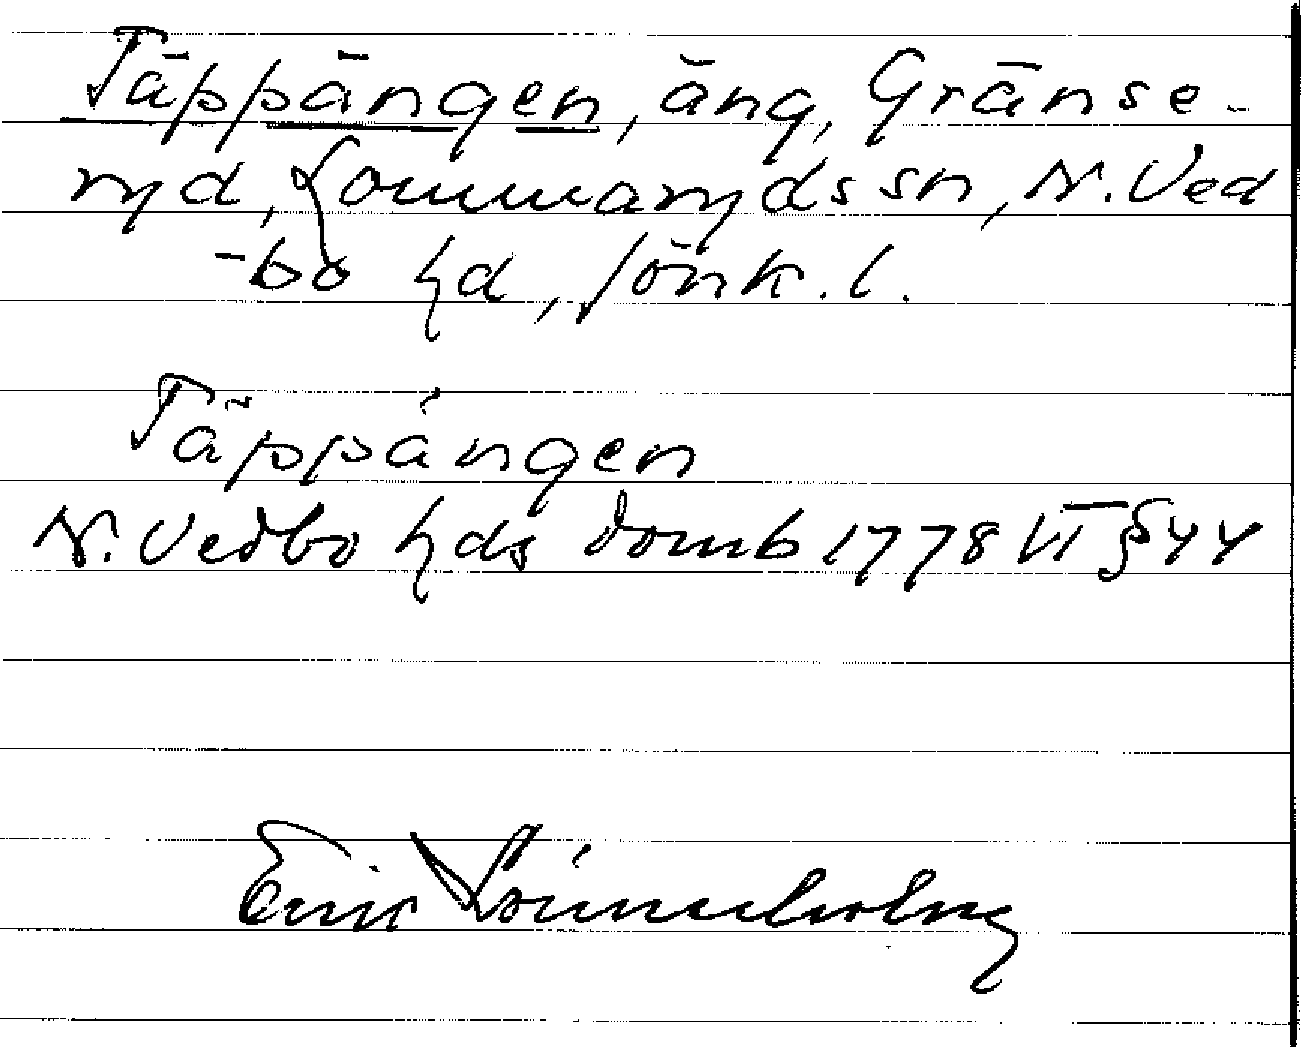 Täppängen, äng, Gränse-
ryd, Lommaryds sn, N. Ved
-bo hd, Jönk. l.
Täppängen
N. Vedbo hds domb 1778 VI § 44
Erik Lönnerholm